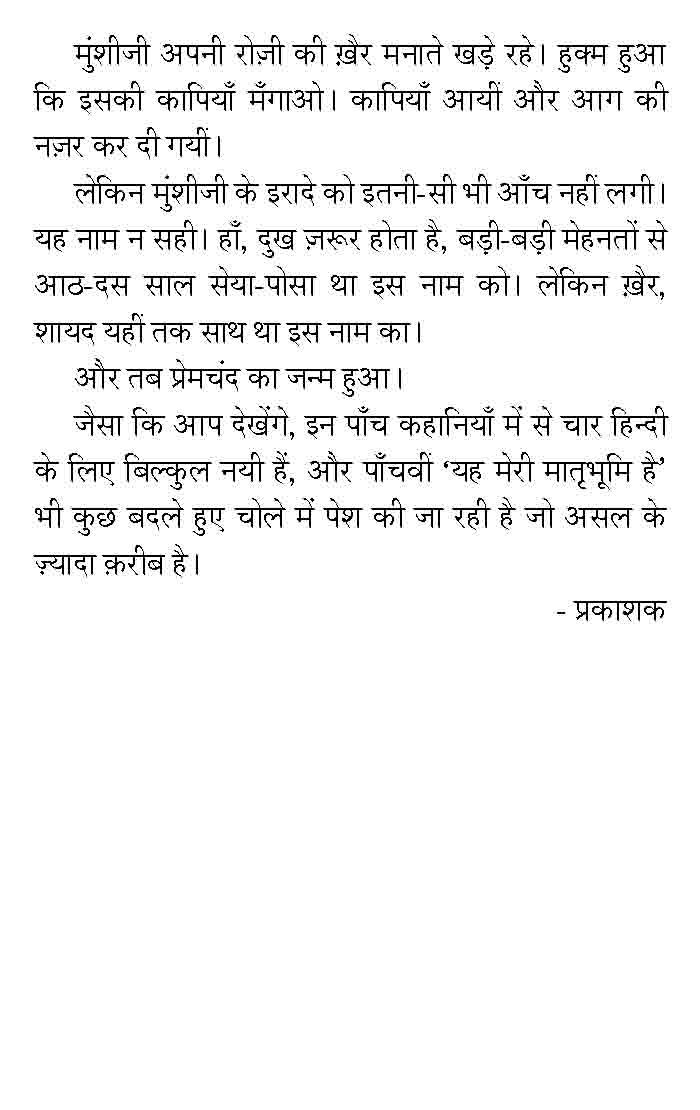 मुंशीजी अपनी रोज़ी की ख़ैर मनाते खड़े रहे। हुक्म हुआ
कि इसकी कापियाँ मँगाओ। कापियाँ आयीं और आग की
नज़र कर दी गयीं।
लेकिन मुंशीजी के इरादे को इतनी-सी भी आँच नहीं लगी।
यह नाम न सही। हाँ, दुख ज़रूर होता है, बड़ी-बड़ी मेहनतों से
आठ-दस साल सेया-पोसा था इस नाम को। लेकिन ख़ैर,
शायद यहीं तक साथ था इस नाम का।
और तब प्रेमचंद का जन्म हुआ।
जैसा कि आप देखेंगे, इन पाँच कहानियाँ में से चार हिन्दी
के लिए बिल्कुल नयी हैं, और पाँचवीं ‘यह मेरी मातृभूमि है’
भी कुछ बदले हुए चोले में पेश की जा रही है जो असल के
ज़्यादा क़रीब है।
- प्रकाशक